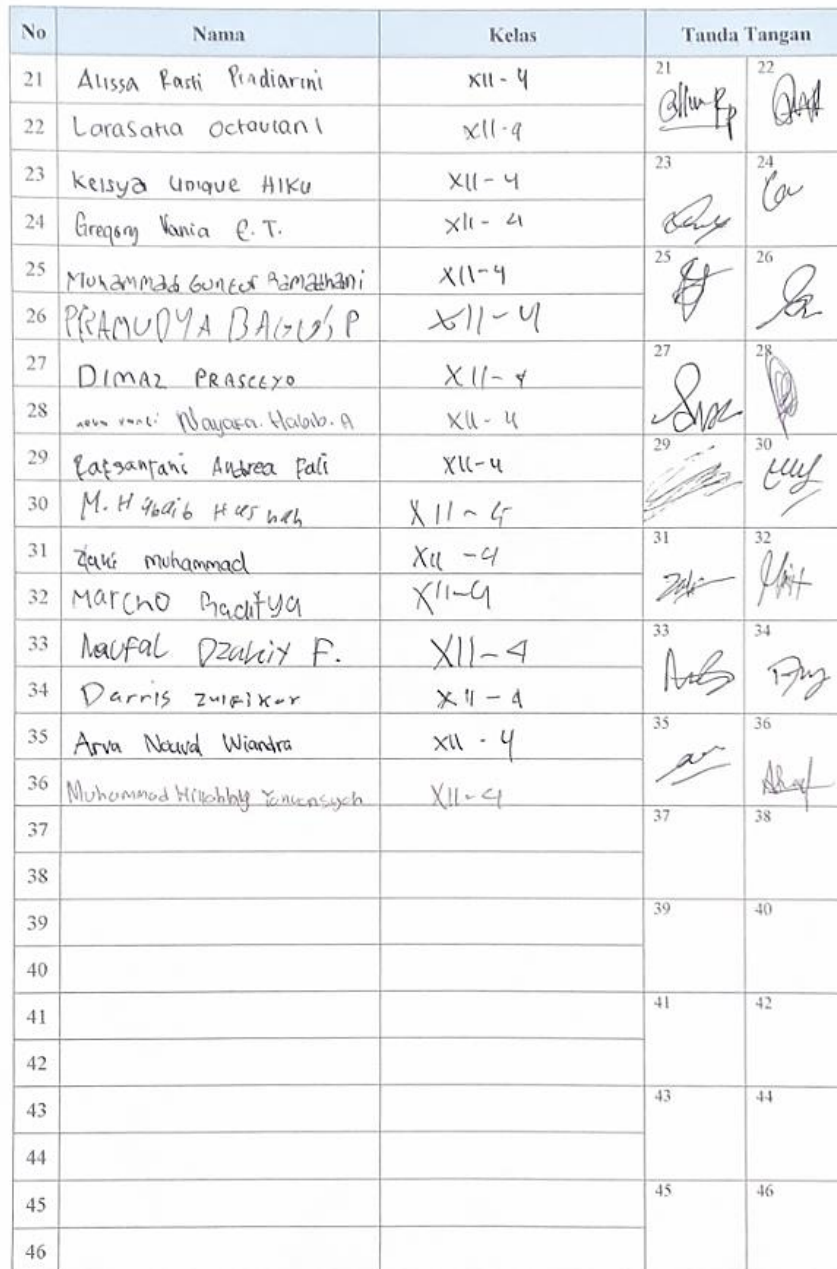 No Nama Kelas Tanda Tangan
21 Alissa Rasti Pindiarini XII-4 21 22
22 Larasatia Octaviani XII-4
23 Keisya Unique Hiku XII-4 23 24
24 Gregory Vania E. T. XII-4
25 Muhammad Guntur Ramadhani XII-4 25 26
26 PRAMUDYA BAGUS P XII-4
27 DIMAZ PRASETYO XII-4 27 28
28 Nayara. Habib. A XII-4
29 Andrea XII-4 29 30
30 M. XII-4
31 Zaki Muhammad XII-4 31 32
32 Marcho Raditya XII-4
33 Naufal Dzakiy F. XII-4 33 34
34 Darris Zulfikar XII-4
35 Arva Nouval Wiandra XII-4 35 36
36 Muhammad XII-4
37 37 38
38
39 39 40
40
41 41 42
42
43 43 44
44
45 45 46
46